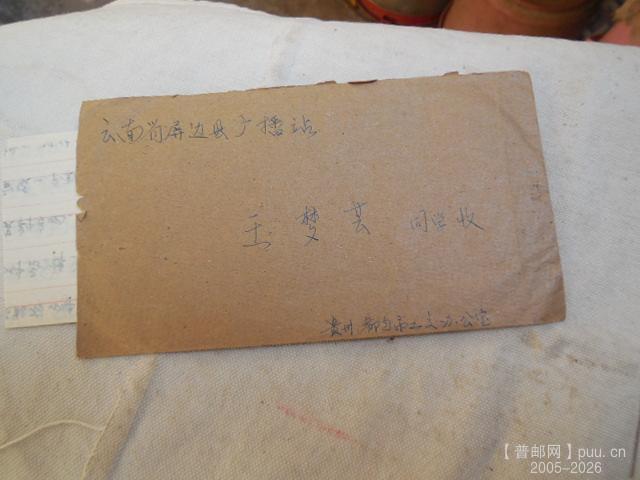 云南省屏边县广播站
王梦芸 同学收
贵州都匀市工交办公室
【普邮网】puu.cn
2005-2026